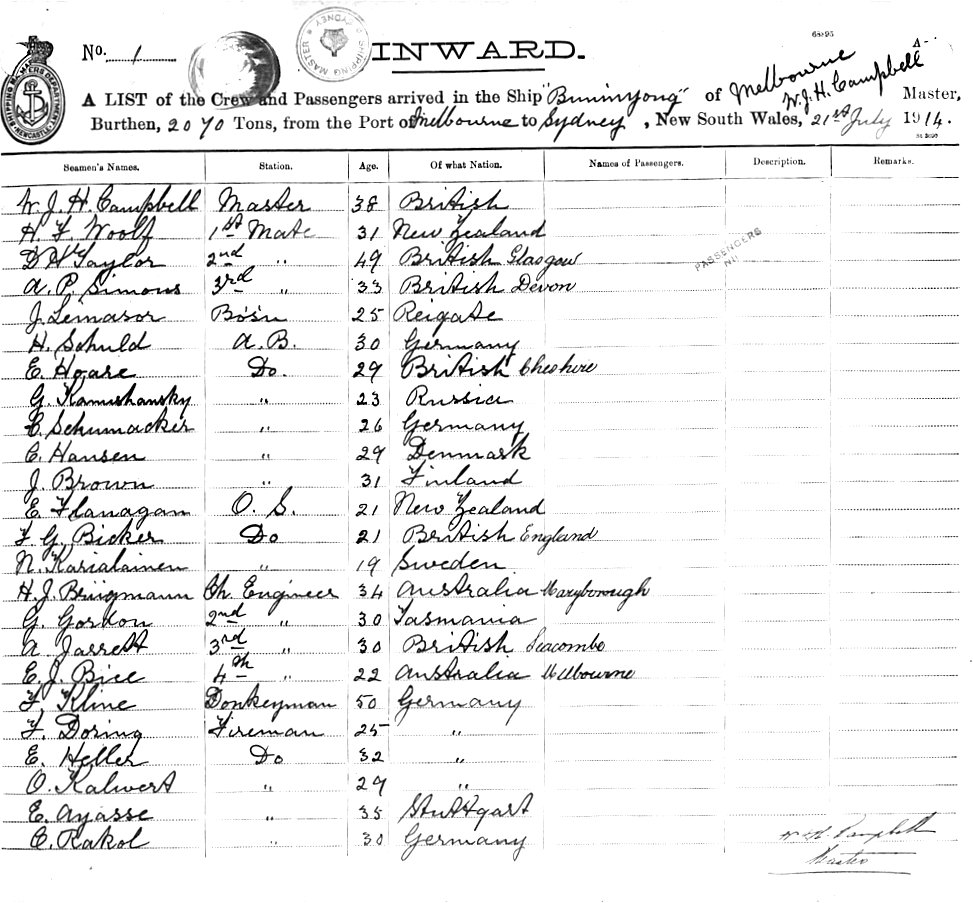 No. 1
INWARD.
68893
A-
SHIPPING MASTER SYDNEY
SHIPPING MASTERS DEPARTMENT NEWCASTLE
A LIST of the Crew and Passengers arrived in the Ship "Buninyong" of Melbourne W. J. H. Campbell Master,
Burthen, 2070 Tons, from the Port of Melbourne to Sydney, New South Wales, 21st July 1914.
Seamen's Names. Station. Age. Of what Nation. Names of Passengers. Description. Remarks.
W. J. H. Campbell Master 38 British
H. F. Woolf 1st Mate 31 New Zealand
D H Taylor 2nd " 49 British Glasgow
PASSENGERS
NIL
A. P. Simons 3rd " 33 British Devon
J. Lemasor Bosn 25 Reigate
H. Schuld A. B. 30 Germany
E. Hoare Do. 29 British Cheshire
G. Kamishansky " 23 Russia
C. Schumacker " 26 Germany
C. Hansen " 29 Denmark
J. Brown " 31 Finland
E. Flanagan O. S. 21 New Zealand
F. G. Bicker Do 21 British England
N. Karialainen " 19 Sweden
H. J. Brügmann Ch. Engineer 34 Australia Maryborough
G. Gordon 2nd " 30 Tasmania
A Jarrett 3rd " 30 British Seacombe
E. J. Bice 4th " 22 Australia Melbourne
F. Kline Donkeyman 50 Germany
F. Doring Fireman 25 "
E. Heller Do 32 "
O. Kalwert " 29 "
E. Ayasse " 35 Stuttgart
C. Rakol " 30 Germany
W. H. Campbell
Master